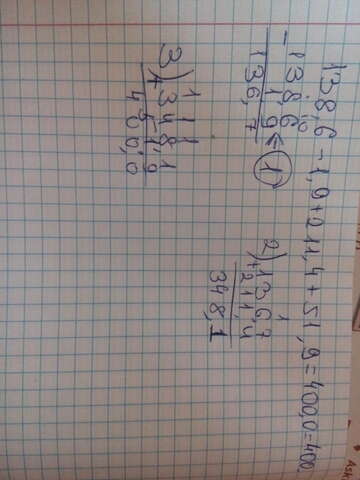 138,6 - 1,9 + 211,4 + 51,9 = 400,0 = 400.
10
- 138,6
1,9 ← 1)
136,7
1
2) + 136,7
211,4
348,1
1 1 1
3) + 348,1
51,9
400,0
Ask